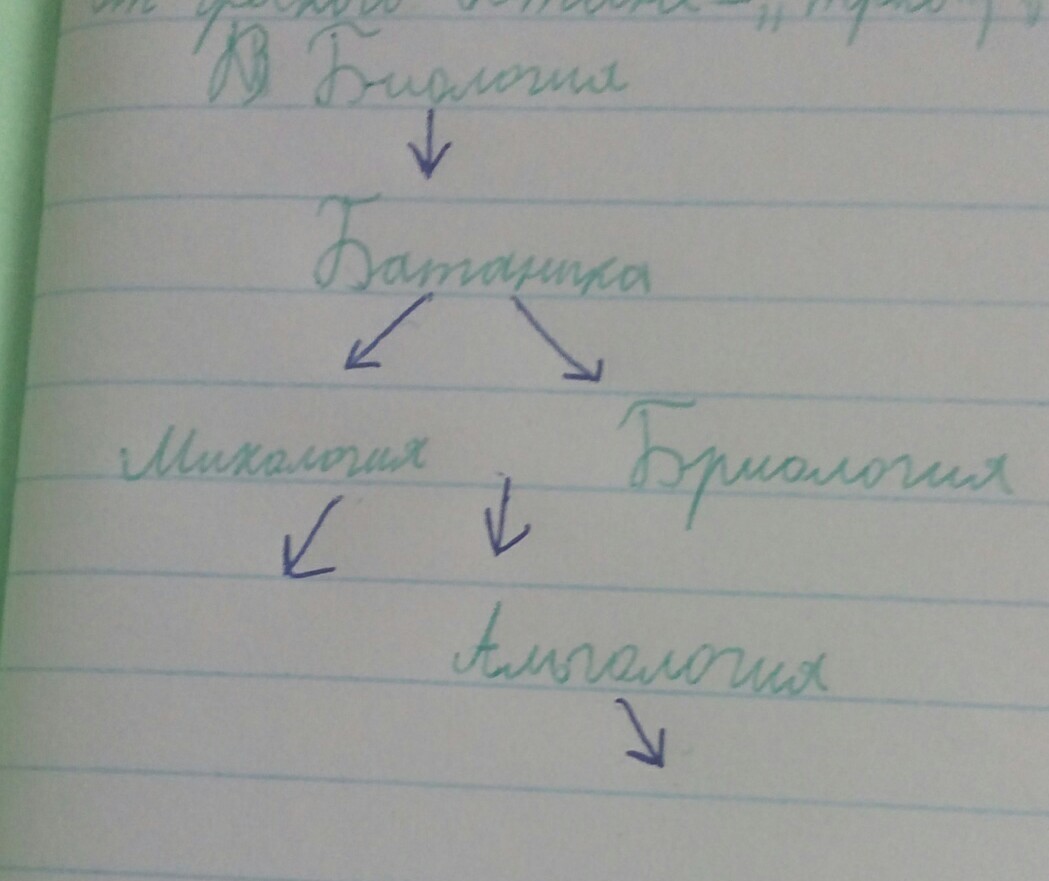 от
Биология
Батаника
Микология Бриология
Альгология